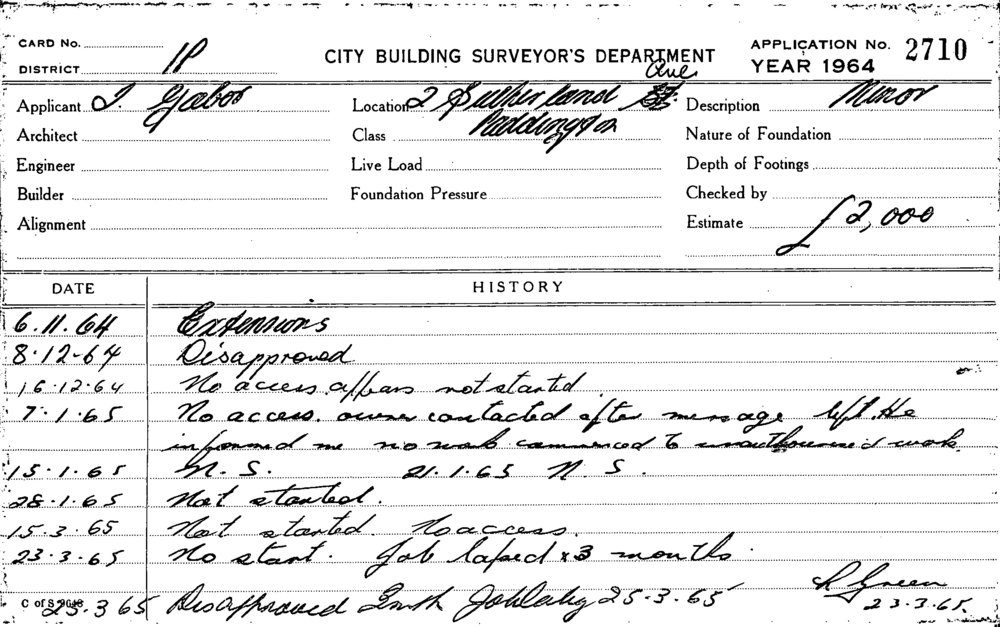 CARD No.
DISTRICT 1P
CITY BUILDING SURVEYOR'S DEPARTMENT
APPLICATION No. 2710
YEAR 1964
Applicant I. Gabor
Location 2 Sutherland St. Ave
Description Minor
Architect
Class Paddington
Nature of Foundation
Engineer
Live Load
Depth of Footings
Builder
Foundation Pressure
Checked by
Alignment
Estimate £2,000
DATE HISTORY
6.11.64 Extensions
8.12-64 Disapproved
16.12.64 No access appears not started
7.1.65 No access. owner contacted after message left. He
informed me no work commenced
work.
15.1.65 N.S. 21.1.65 N.S.
28.1.65 Not started.
15.3.65 Not started. No access.
23.3.65 No start. Job lapsed x 3 months.
Green
23.3.65.
C of S
25.3.65 Disapproved 25-3.65